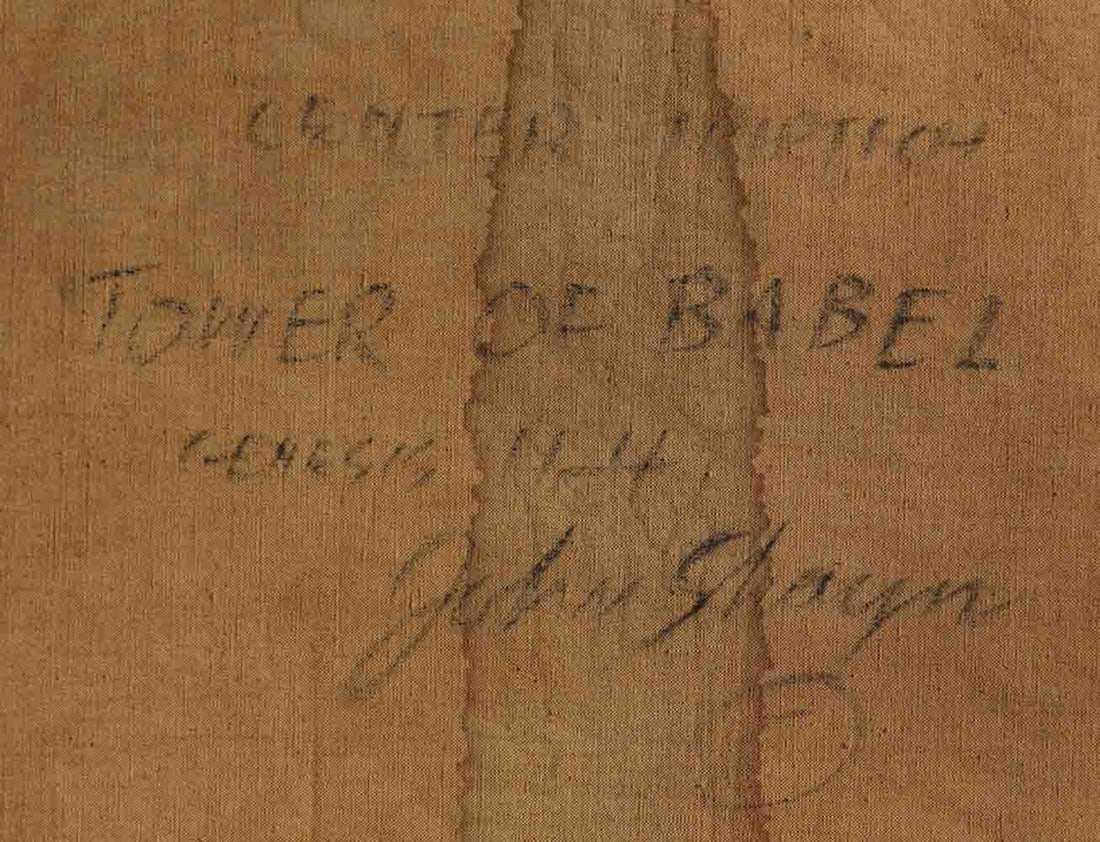 CENTER
TOWER OF BABEL
GENESIS
John Shayn